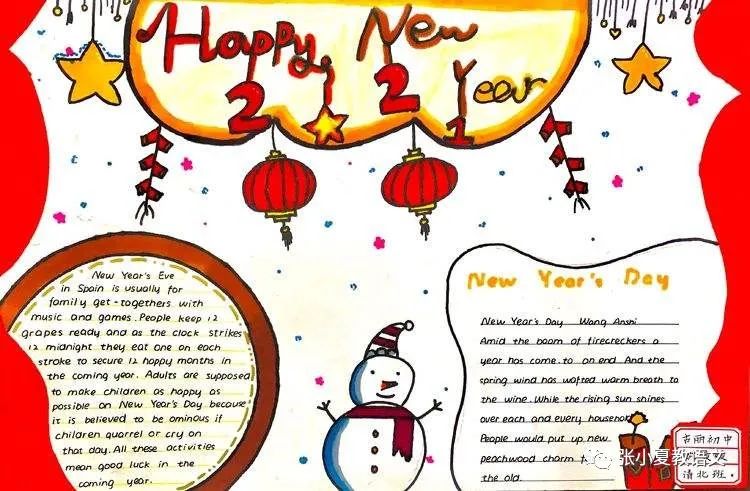 Happy New
Year
2 2 1
New Year's Eve
in Spain is usually for
family get-togethers with
music and games. People keep 12
grapes ready and as the clock strikes
12 midnight they eat one on each
stroke to secure 12 happy months in
the coming year. Adults are supposed
to make children as happy as
possible on New Year's Day because
it is believed to be ominous if
children quarrel or cry on
that day. All these activities
mean good luck in the
coming year.
New Year's Day
New Year's Day Wang Anshi
Amid the boom of firecreckers a
year has come. to on end And the
spring wind has wafted warm breath to
the wine. While the rising sun shines
over each and every househol
People would put up new
peachwood charm t
the old.
初中
清北班
张小夏教语文